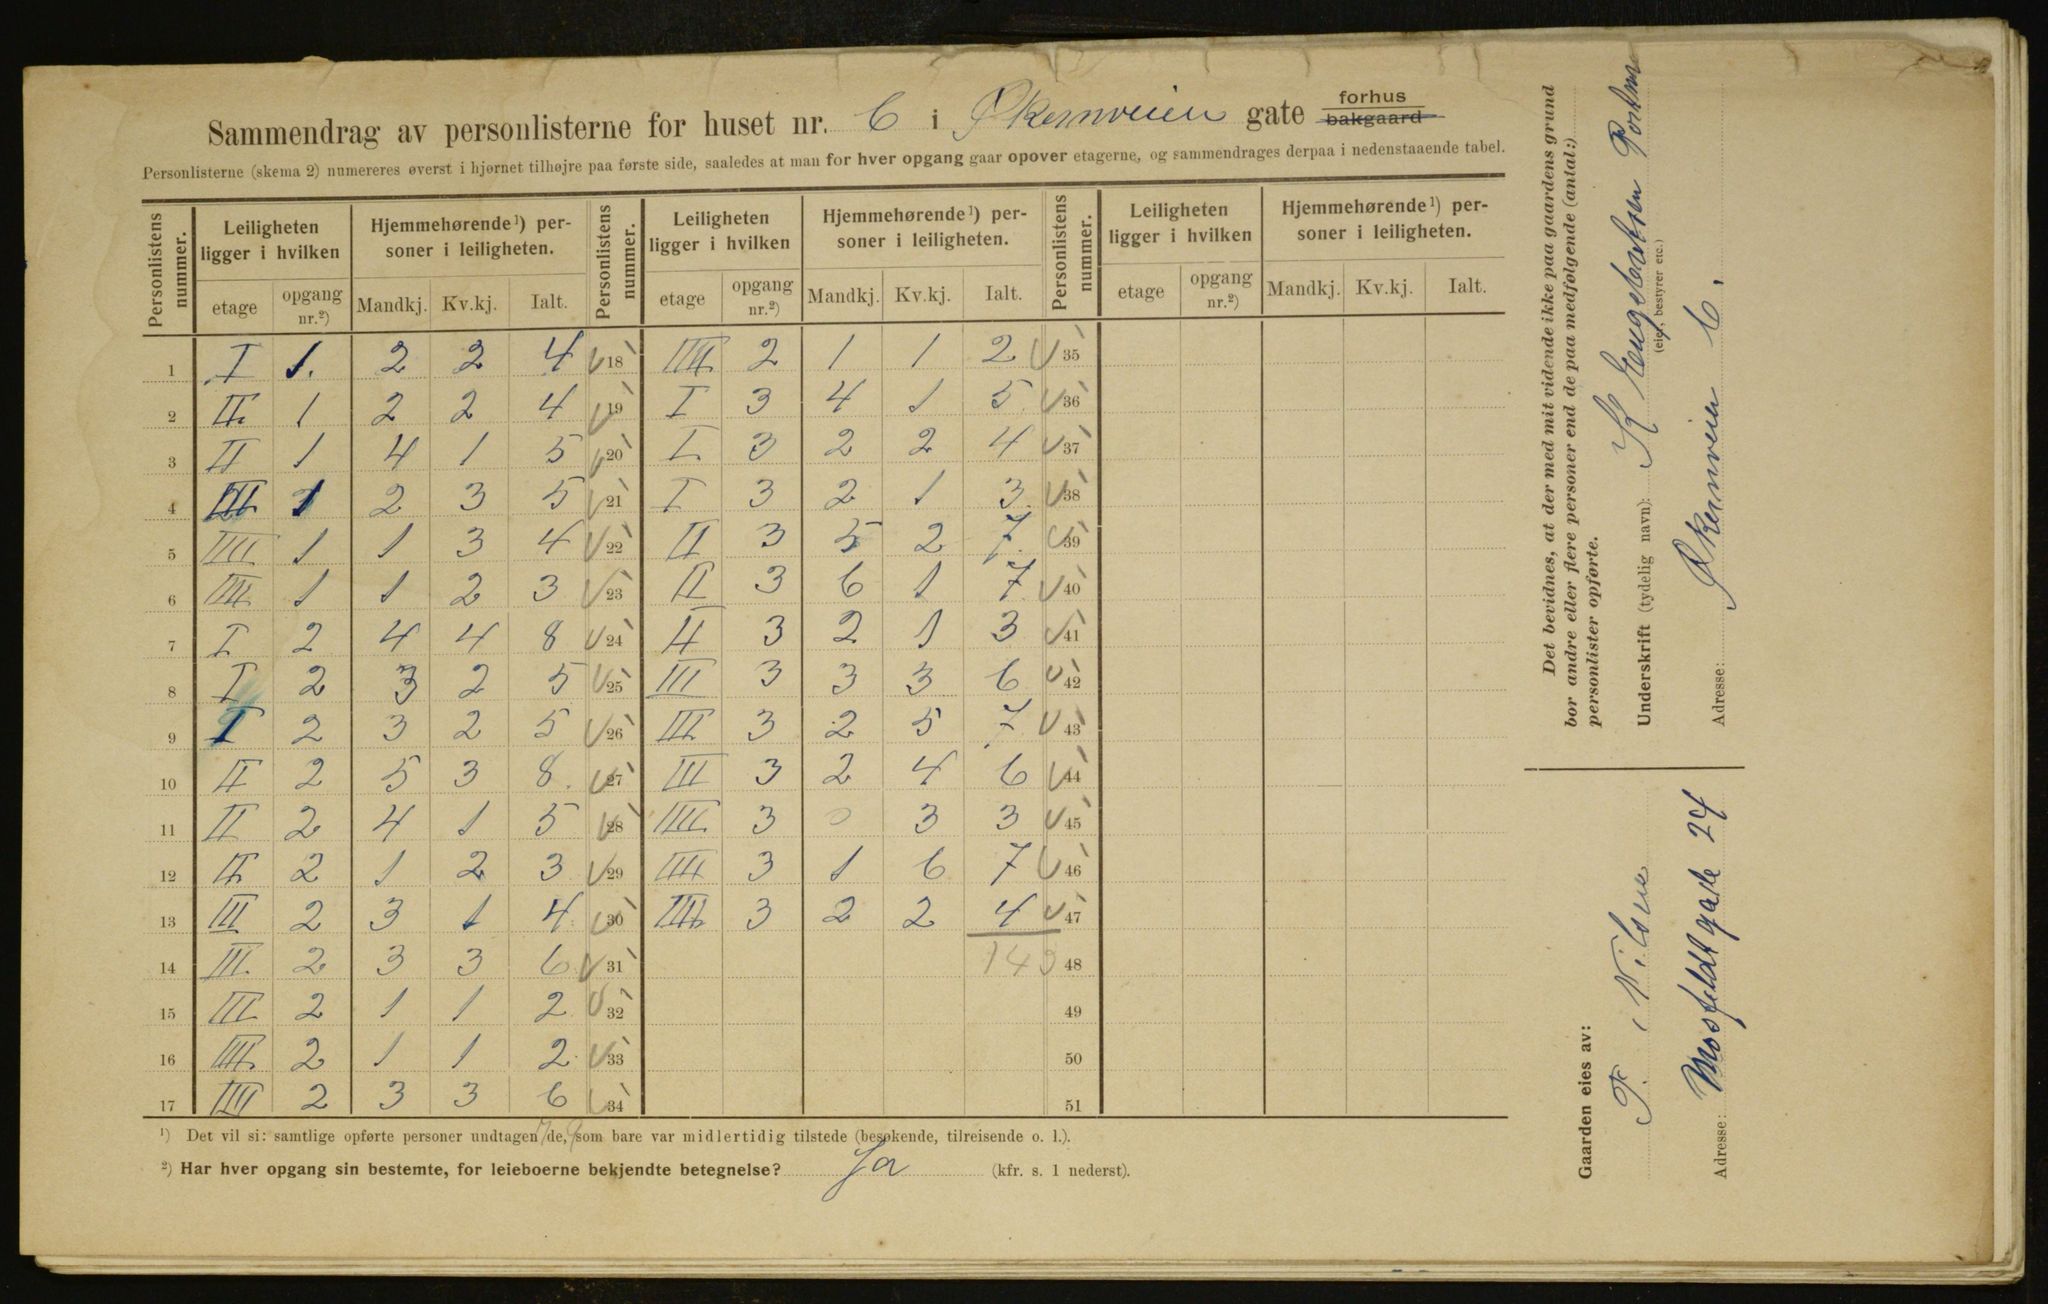 Sammendrag av personlisterne for huset nr. 6 i Økernveien gate forhus bakgaard
Personlisterne (skema 2) numereres øverst i hjørnet tilhøjre paa første side, saaledes at man for hver opgang gaar opover etagerne, og sammendrages derpaa i nedenstaaende tabel.
Personlistens nummer. Leiligheten ligger i hvilken Hjemmehørende¹) personer i leiligheten. Personlistens nummer. Leiligheten ligger i hvilken Hjemmehørende¹) personer i leiligheten. Personlistens nummer. Leiligheten ligger i hvilken Hjemmehørende¹) personer i leiligheten.
etage opgang nr.²) Mandkj. Kv.kj. Ialt. etage opgang nr.²) Mandkj. Kv.kj. Ialt. etage opgang nr.²) Mandkj. Kv.kj. Ialt.
1 I 1. 2 2 4 18 IIII 2 1 1 2 35
2 II 1 2 2 4 19 I 3 4 1 5 36
3 II 1 4 1 5 20 I 3 2 2 4 37
4 III 1 2 3 5 21 I 3 2 1 3 38
5 IIII 1 1 3 4 22 II 3 5 2 7 39
6 IIII 1 1 2 3 23 II 3 6 1 7 40
7 I 2 4 4 8 24 II 3 2 1 3 41
8 I 2 3 2 5 25 III 3 3 3 6 42
9 I 2 3 2 5 26 III 3 2 5 7 43
10 II 2 5 3 8 27 III 3 2 4 6 44
11 II 2 4 1 5 28 IIII 3 0 3 3 45
12 II 2 1 2 3 29 IIII 3 1 6 7 46
13 III 2 3 1 4 30 IIII 3 2 2 4 47
14 III 2 3 3 6 31 143 48
15 III 2 1 1 2 32 49
16 IIII 2 1 1 2 33 50
17 IIII 2 3 3 6 34 51
¹) Det vil si: samtlige opførte personer undtagen de, som bare var midlertidig tilstede (besøkende, tilreisende o. l.).
²) Har hver opgang sin bestemte, for leieboerne bekjendte betegnelse? Ja (kfr. s. 1 nederst).
Det bevidnes, at der med mit vidende ikke paa gaardens grund
bor andre eller flere personer end de paa medfølgende (antal:)
personlister opførte.
Underskrift (tydelig navn): K Engebretsen
(eier, bestyrer etc.)
Adresse: Økernveien 6.
Gaarden eies av:
T. Nilsen
Adresse: Mosfeldt gade 24